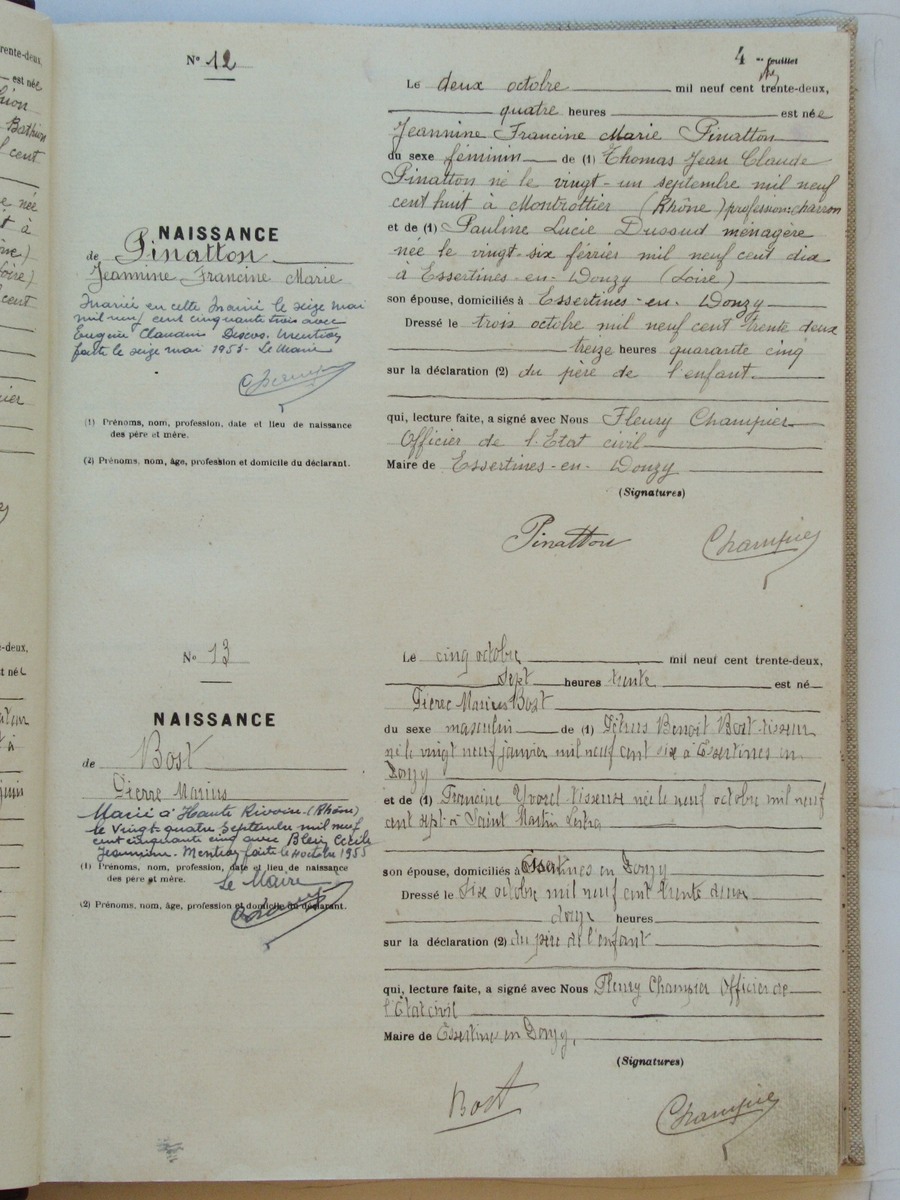 4 me feuillet
N° 12
NAISSANCE
de Pinatton
Jeannine Francine Marie
Mariée en cette Mairie le seize mai
mil neuf cent cinquante trois avec
Eugène Claudius Mention
faite le seize mai 1953. Le Maire
(1) Prénoms, nom, profession, date et lieu de naissance
des père et mère.
(2) Prénoms, nom, âge, profession et domicile du déclarant.
Le deux octobre mil neuf cent trente-deux,
quatre heures est née
Jeannine Francine Marie Pinatton
du sexe féminin de (1) Thomas Jean Claude
Pinatton né le vingt-un septembre mil neuf
cent huit à Montrottier (Rhône) profession: charron
et de (1) Pauline Lucie Dussud ménagère
née le vingt-six février mil neuf cent dix
à Essertines-en-Donzy (Loire)
son épouse, domiciliés à Essertines-en-Donzy
Dressé le trois octobre mil neuf cent trente deux
treize heures quarante cinq
sur la déclaration (2) du père de l'enfant
qui, lecture faite, a signé avec Nous Fleury Champier
Officier de l'Etat civil
Maire de Essertines-en-Donzy
(Signatures)
Pinatton Champier
N° 13
NAISSANCE
de Bost
Pierre Marius
Marié à Haute Rivoire (Rhône)
le vingt-quatre septembre mil neuf
cent cinquante cinq avec Blein Cécile
Jeannine. Mention faite le 4 octobre 1955
(1) Prénoms, nom, profession, date et lieu de naissance
des père et mère.
Le Maire
(2) Prénoms, nom, âge, profession et domicile du déclarant.
Le cinq octobre mil neuf cent trente-deux,
sept heures trente est né
Pierre Marius Bost
du sexe masculin de (1) Pétrus Benoit Bost tisseur
né le vingt neuf janvier mil neuf cent six à Essertines en
Donzy
et de (1) Francine Yvorel tisseuse née le neuf octobre mil neuf
cent sept à Saint Martin Lestra
son épouse, domiciliés à Essertines en Donzy
Dressé le six octobre mil neuf cent trente deux
douze heures
sur la déclaration (2) du père de l'enfant
qui, lecture faite, a signé avec Nous Fleury Champier Officier de
l'Etat civil
Maire de Essertines en Donzy,
(Signatures)
Bost Champier